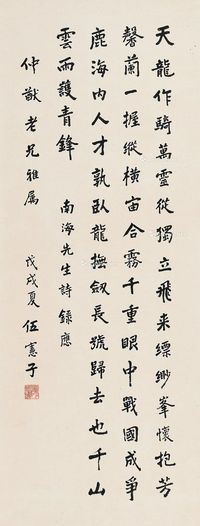 天龍作騎萬靈從獨立飛来縹緲峯懷抱芳
馨蘭一握縱橫宙合霧千重眼中戰國成爭
鹿海內人才孰臥龍撫劔長號歸去也千山
雲雨護青鋒
南海先生詩錄應
仲猷老兄雅属
戊戌夏 伍憲子